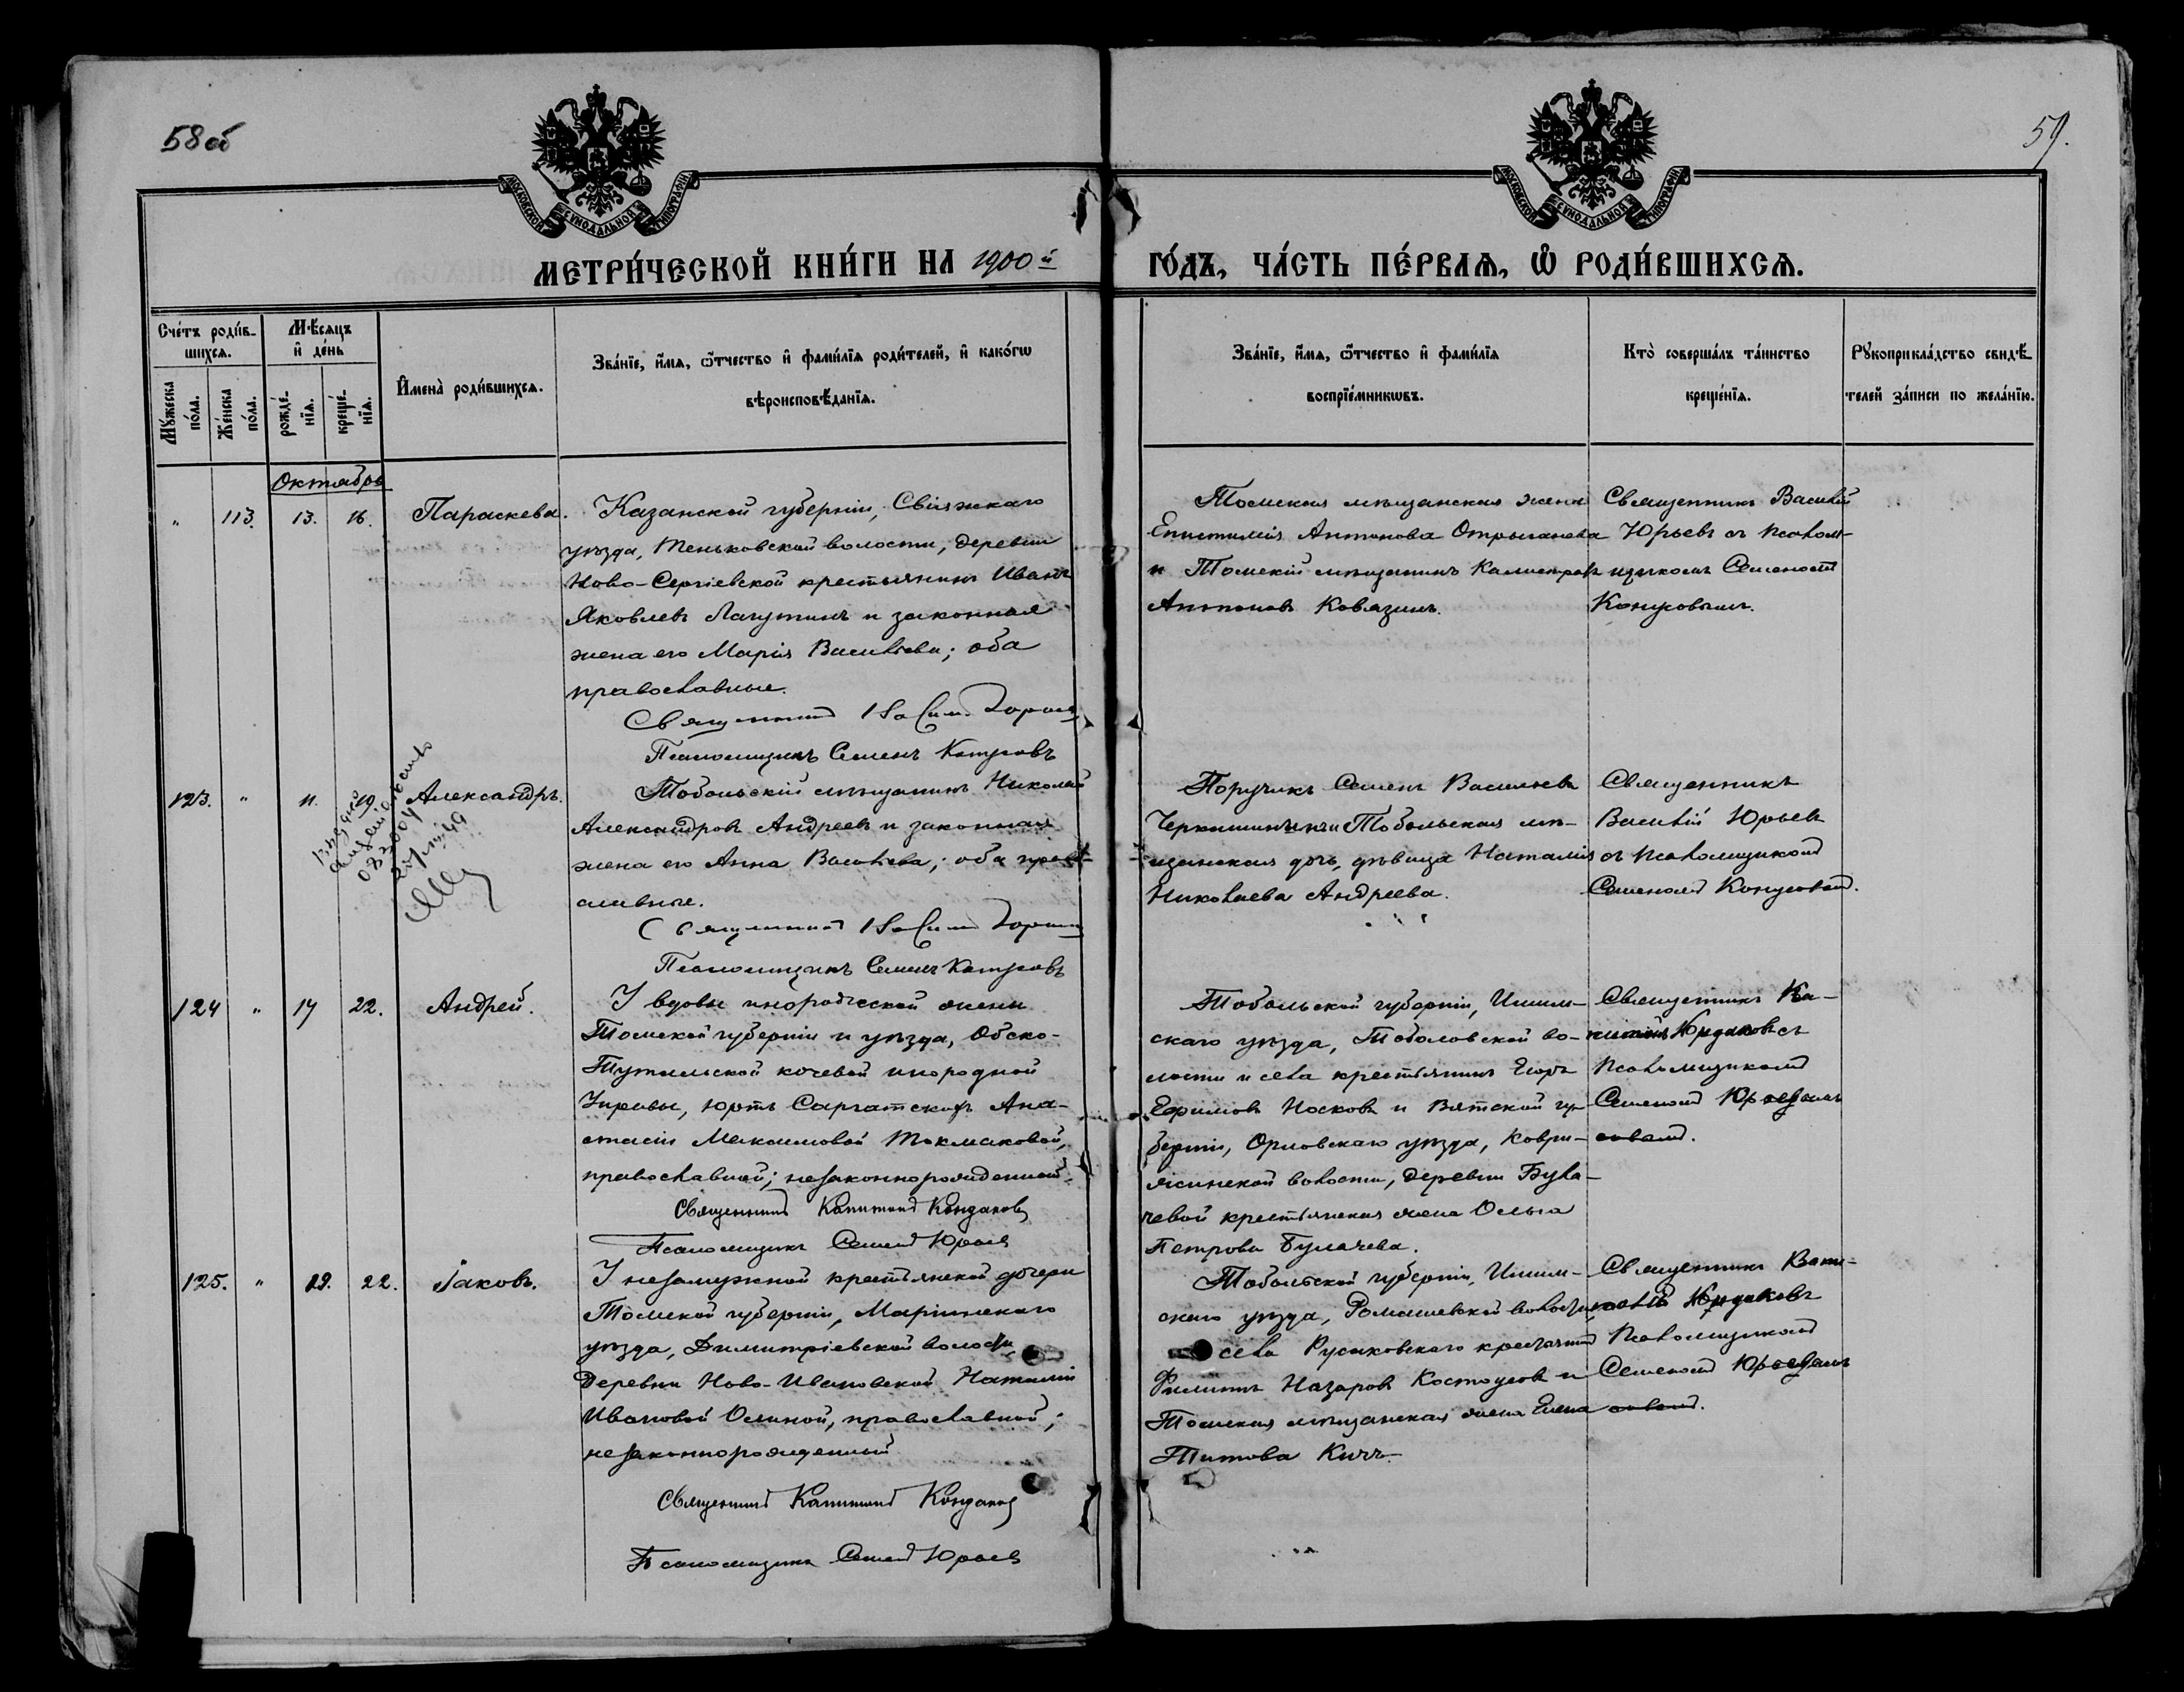 58 об
59.
МОСКОВСКОЙ СѴНОДАЛЬНОЙ ТИПОГРАФІИ
МОСКОВСКОЙ СѴНОДАЛЬНОЙ ТИПОГРАФІИ
МЕТРИ́ЧЕСКОЙ КНИ́ГИ НА 1900й
ГО́ДЪ, ЧА́СТЬ ПЕ́РВАѦ, Ѽ РОДИ́ВШИХСѦ.
Сче́тъ роди́в-
шихсѧ.
Мꙋ́жеска по́ла.
Же́нска по́ла.
Мѣ́сѧцъ
и҆ де́нь
рожде́-
нїѧ.
креще́-
нїѧ.
И҆мена̀ роди́вшихсѧ.
Зва́нїе, и҆́мѧ, ѻ҆́тчество и҆ фами́лїѧ роди́телей, и҆ како́гѡ
вѣроисповѣ́данїѧ.
Зва́нїе, и҆́мѧ, ѻ҆́тчество и҆ фами́лїѧ
воспрїе́мникѡвъ.
Кто̀ соверша́лъ та́инство
креще́нїѧ.
Рꙋкоприкла́дство свидѣ́-
телей за́писи по жела́нїю.
Октябрь
" 113. 13. 16. Параскева.
Казанской губерніи, Свіяжскаго
уѣзда, Теньковской волости, деревни
Ново-Сергіевской крестьянинъ Иванъ
Яковлевъ Лагутинъ и законная
жена его Марія Васильева; оба
православные.
Священникъ Василій Юрьевъ
Псаломщикъ Семенъ Концовъ
Томская мѣщанская жена
Епистимія Антонова
и Томскій мѣщанинъ Калистратъ
Антоновъ Ковязинъ.
Священникъ Василій
Юрьевъ съ псалом-
щикомъ Семеномъ
123. " 11. 19. Александръ.
Тобольскій мѣщанинъ Николай
Александровъ Андреевъ и законная
жена его Анна Васильева; оба право-
славные.
Священникъ Василій Юрьевъ
Псаломщикъ Семенъ
Поручикъ Семенъ Васильевъ
и Тобольская мѣ-
щанская дочь, дѣвица Наталія
Николаева Андреева.
Священникъ
Василій Юрьевъ
съ псаломщикомъ
Семеномъ
124 " 17 22. Андрей.
У вдовы инородческой жены
Томской губерніи и уѣзда, Обско-
Тутальской кочевой инородной
Управы, юртъ Саргатскихъ Ана-
стасіи Максимовой Токмаковой,
православной; незаконнорожденный.
Священникъ Капитонъ Кондаковъ
Псаломщикъ Семенъ Юрьевъ
Тобольской губерніи, Ишим-
скаго уѣзда, Тоболовской во-
лости и села крестьянинъ Егоръ
Ефимовъ Носковъ и Вятской гу-
берніи, Орловскаго уѣзда, Коври-
жинской волости, деревни Була-
чевой крестьянская жена Ольга
Петрова Булачева.
Священникъ Ка-
питонъ Кондаковъ съ
псаломщикомъ
Семеномъ Юрьевымъ
125. " 19. 22. Іаковъ.
У незамужной крестьянской дочери
Томской губерніи, Маріинскаго
уѣзда, Димитріевской волости
деревни Ново-Ивановской Наталіи
Ивановой Осиной, православной;
незаконнорожденный
Священникъ Капитонъ Кондаковъ
Псаломщикъ Семенъ Юрьевъ
Тобольской губерніи, Ишим-
скаго уѣзда, Ромашевской волости,
села крестьянинъ
Филиппъ Назаровъ Костоусовъ и
Томская мѣщанская жена Елена
Титова
Священникъ Капи-
тонъ Кондаковъ
псаломщикомъ
Семеномъ Юрьевымъ